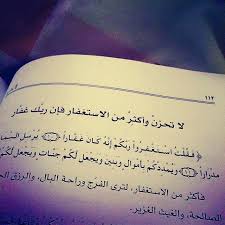 ١١٢
لا تحزن وأكثر من الاستغفار فإن ربك غفار
﴿ فَقُلْتُ اسْتَغْفِرُوا رَبَّكُمْ إِنَّهُ كَانَ غَفَّاراً ﴿١٠﴾ يُرْسِلِ السَّمَا
مِدْرَاراً ﴿١١﴾ وَيُمْدِدْكُمْ بِأَمْوَالٍ وَبَنِينَ وَيَجْعَل لَّكُمْ جَنَّاتٍ وَيَجْعَل لَّكُمْ
فأكثر من الاستغفار، لترى الفرج وراحة البال، والرزق الحـ
الصالحة، والغيث الغزير.